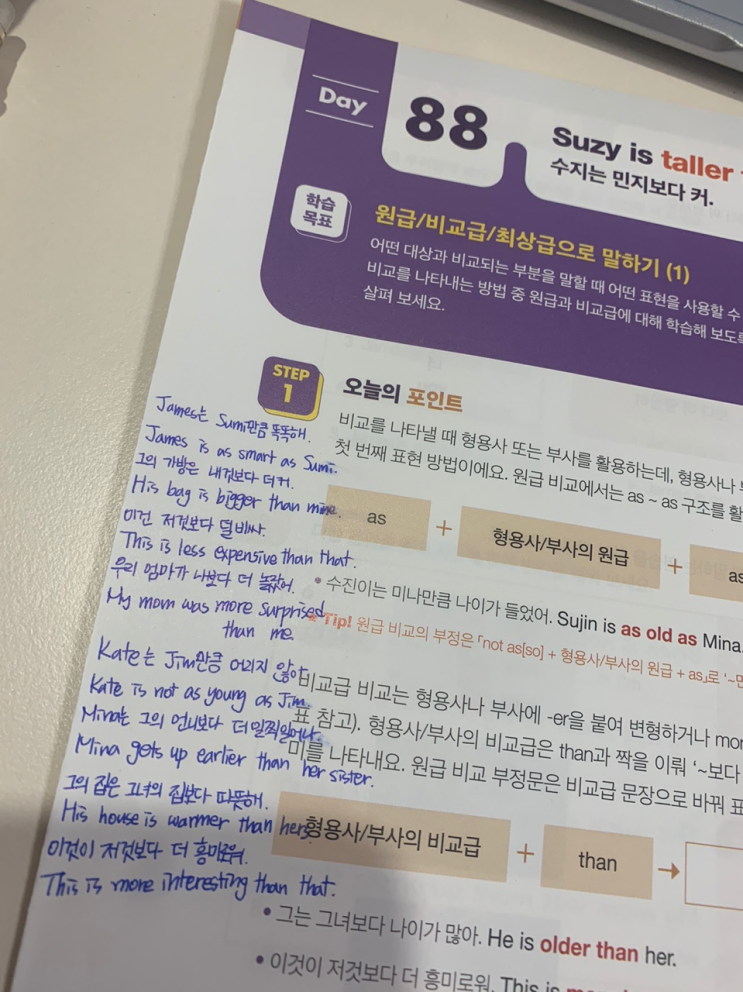 Day
88
Suzy is taller
수지는 민지보다 커.
학습
목표
원급/비교급/최상급으로 말하기 (1)
어떤 대상과 비교되는 부분을 말할 때 어떤 표현을 사용할 수
비교를 나타내는 방법 중 원급과 비교급에 대해 학습해 보도록
살펴 보세요.
STEP
1
오늘의 포인트
비교를 나타낼 때 형용사 또는 부사를 활용하는데, 형용사나
첫 번째 표현 방법이에요. 원급 비교에서는 as ~ as 구조를 활
as
+
형용사/부사의 원급
+
as
• 수진이는 미나만큼 나이가 들었어. Sujin is as old as Mina.
Tip! 원급 비교의 부정은 「not as[so] + 형용사/부사의 원급 + as」로 '~만
비교급 비교는 형용사나 부사에 -er을 붙여 변형하거나 mor
표 참고). 형용사/부사의 비교급은 than과 짝을 이뤄 '~보다
미를 나타내요. 원급 비교 부정문은 비교급 문장으로 바꿔 표
형용사/부사의 비교급
+
than
→
• 그는 그녀보다 나이가 많아. He is older than her.
• 이것이 저것보다 더 흥미로워. This is
James는 Sumi만큼 똑똑해.
James is as smart as Sumi.
그의 가방은 내것보다 더 커.
His bag is bigger than mine.
이건 저것보다 덜 비싸.
This is less expensive than that.
우리 엄마가 나보다 더 놀랐어.
My mom was more surprised
than me.
Kate는 Jim만큼 어리지 않아.
Kate is not as young as Jim.
Mina는 그의 언니보다 더 일찍 일어나.
Mina gets up earlier than her sister.
그의 집은 그녀의 집보다 따뜻해.
His house is warmer than hers.
이것이 저것보다 더 흥미로워.
This is more interesting than that.